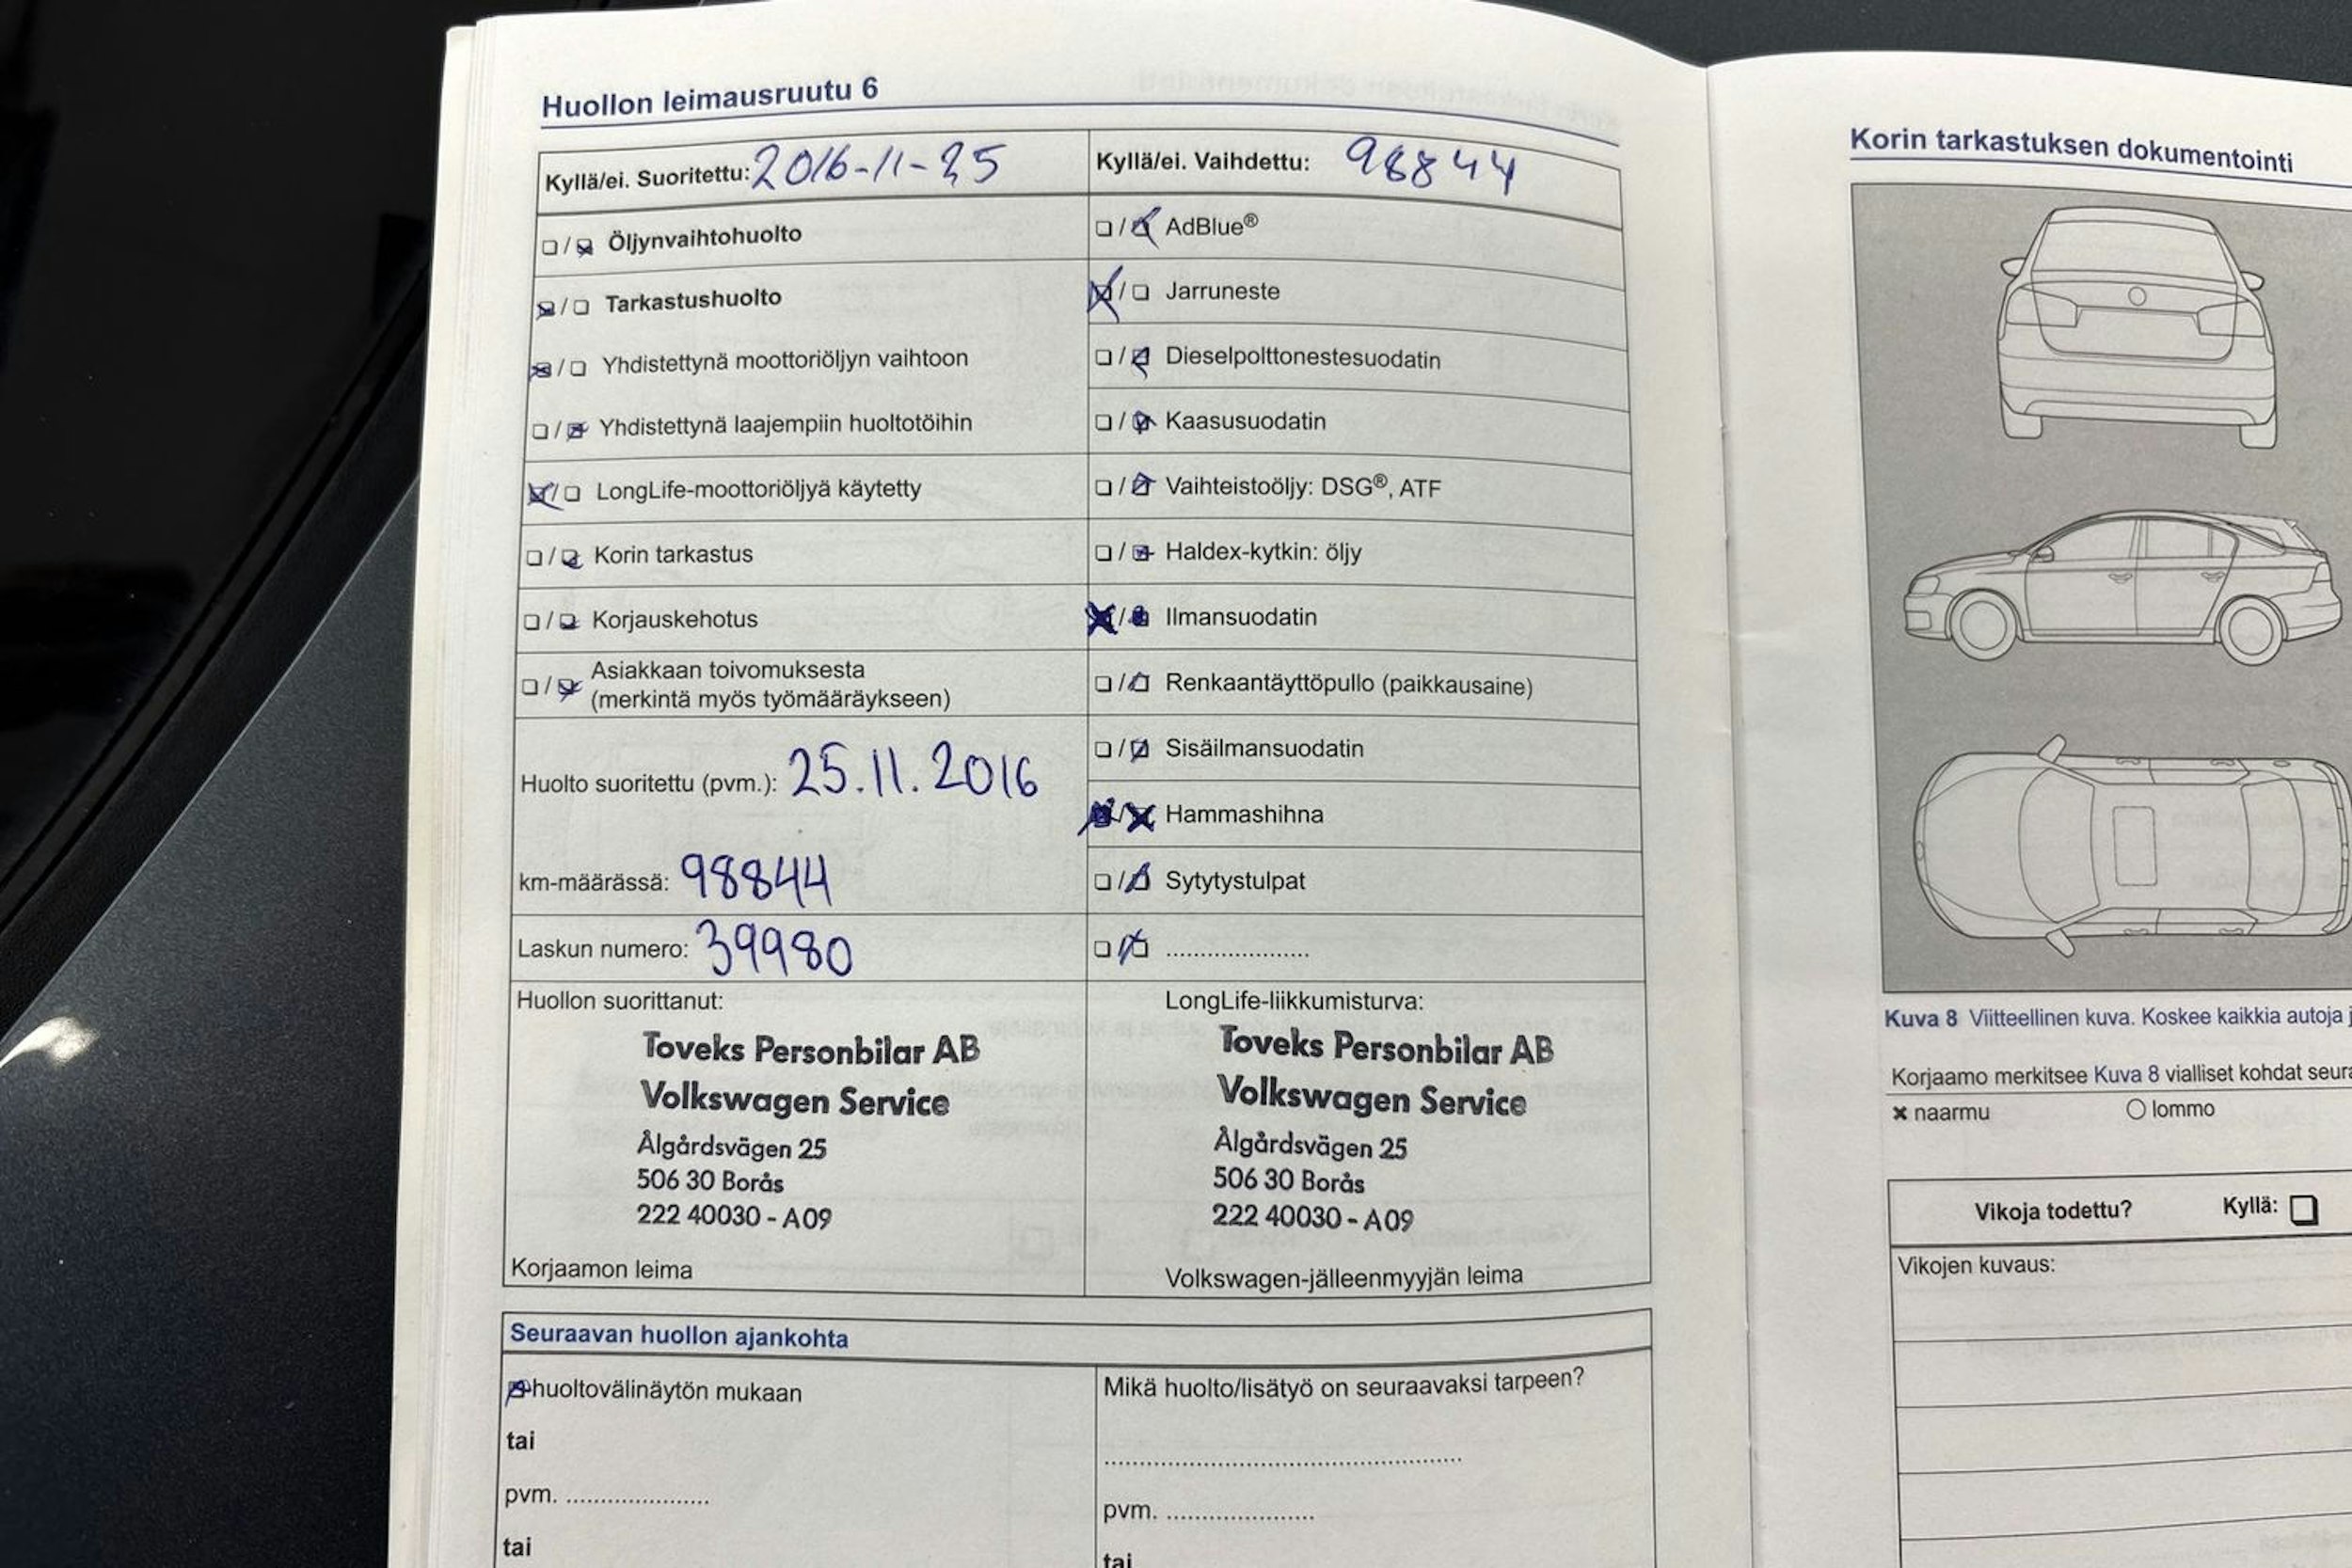 Huollon leimausruutu 6
Kyllä/ei. Suoritettu: 2016-11-25
Öljynvaihtohuolto
Tarkastushuolto
Yhdistettynä moottoriöljyn vaihtoon
Yhdistettynä laajempiin huoltotöihin
LongLife-moottoriöljyä käytetty
Korin tarkastus
Korjauskehotus
Asiakkaan toivomuksesta
(merkintä myös työmääräykseen)
Huolto suoritettu (pvm.): 25.11.2016
km-määrässä: 98844
Laskun numero: 39980
Huollon suorittanut:
Toveks Personbilar AB
Volkswagen Service
Ålgårdsvägen 25
506 30 Borås
222 40030 - A09
Korjaamon leima
Kyllä/ei. Vaihdettu: 98844
AdBlue®
Jarruneste
Dieselpolttonestesuodatin
Kaasusuodatin
Vaihteistoöljy: DSG®, ATF
Haldex-kytkin: öljy
Ilmansuodatin
Renkaantäyttöpullo (paikkausaine)
Sisäilmansuodatin
Hammashihna
Sytytystulpat
......................
LongLife-liikkumisturva:
Toveks Personbilar AB
Volkswagen Service
Ålgårdsvägen 25
506 30 Borås
222 40030 - A09
Volkswagen-jälleenmyyjän leima
Seuraavan huollon ajankohta
huoltovälinäytön mukaan
tai
pvm. ......................
tai
Mikä huolto/lisätyö on seuraavaksi tarpeen?
......................................................
pvm. ......................
tai
Korin tarkastuksen dokumentointi
Kuva 8 Viitteellinen kuva. Koskee kaikkia autoja
Korjaamo merkitsee Kuva 8 vialliset kohdat
naarmu
lommo
Vikoja todettu? Kyllä:
Vikojen kuvaus: